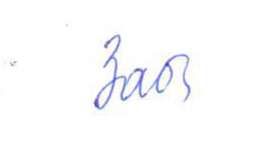 Заоз